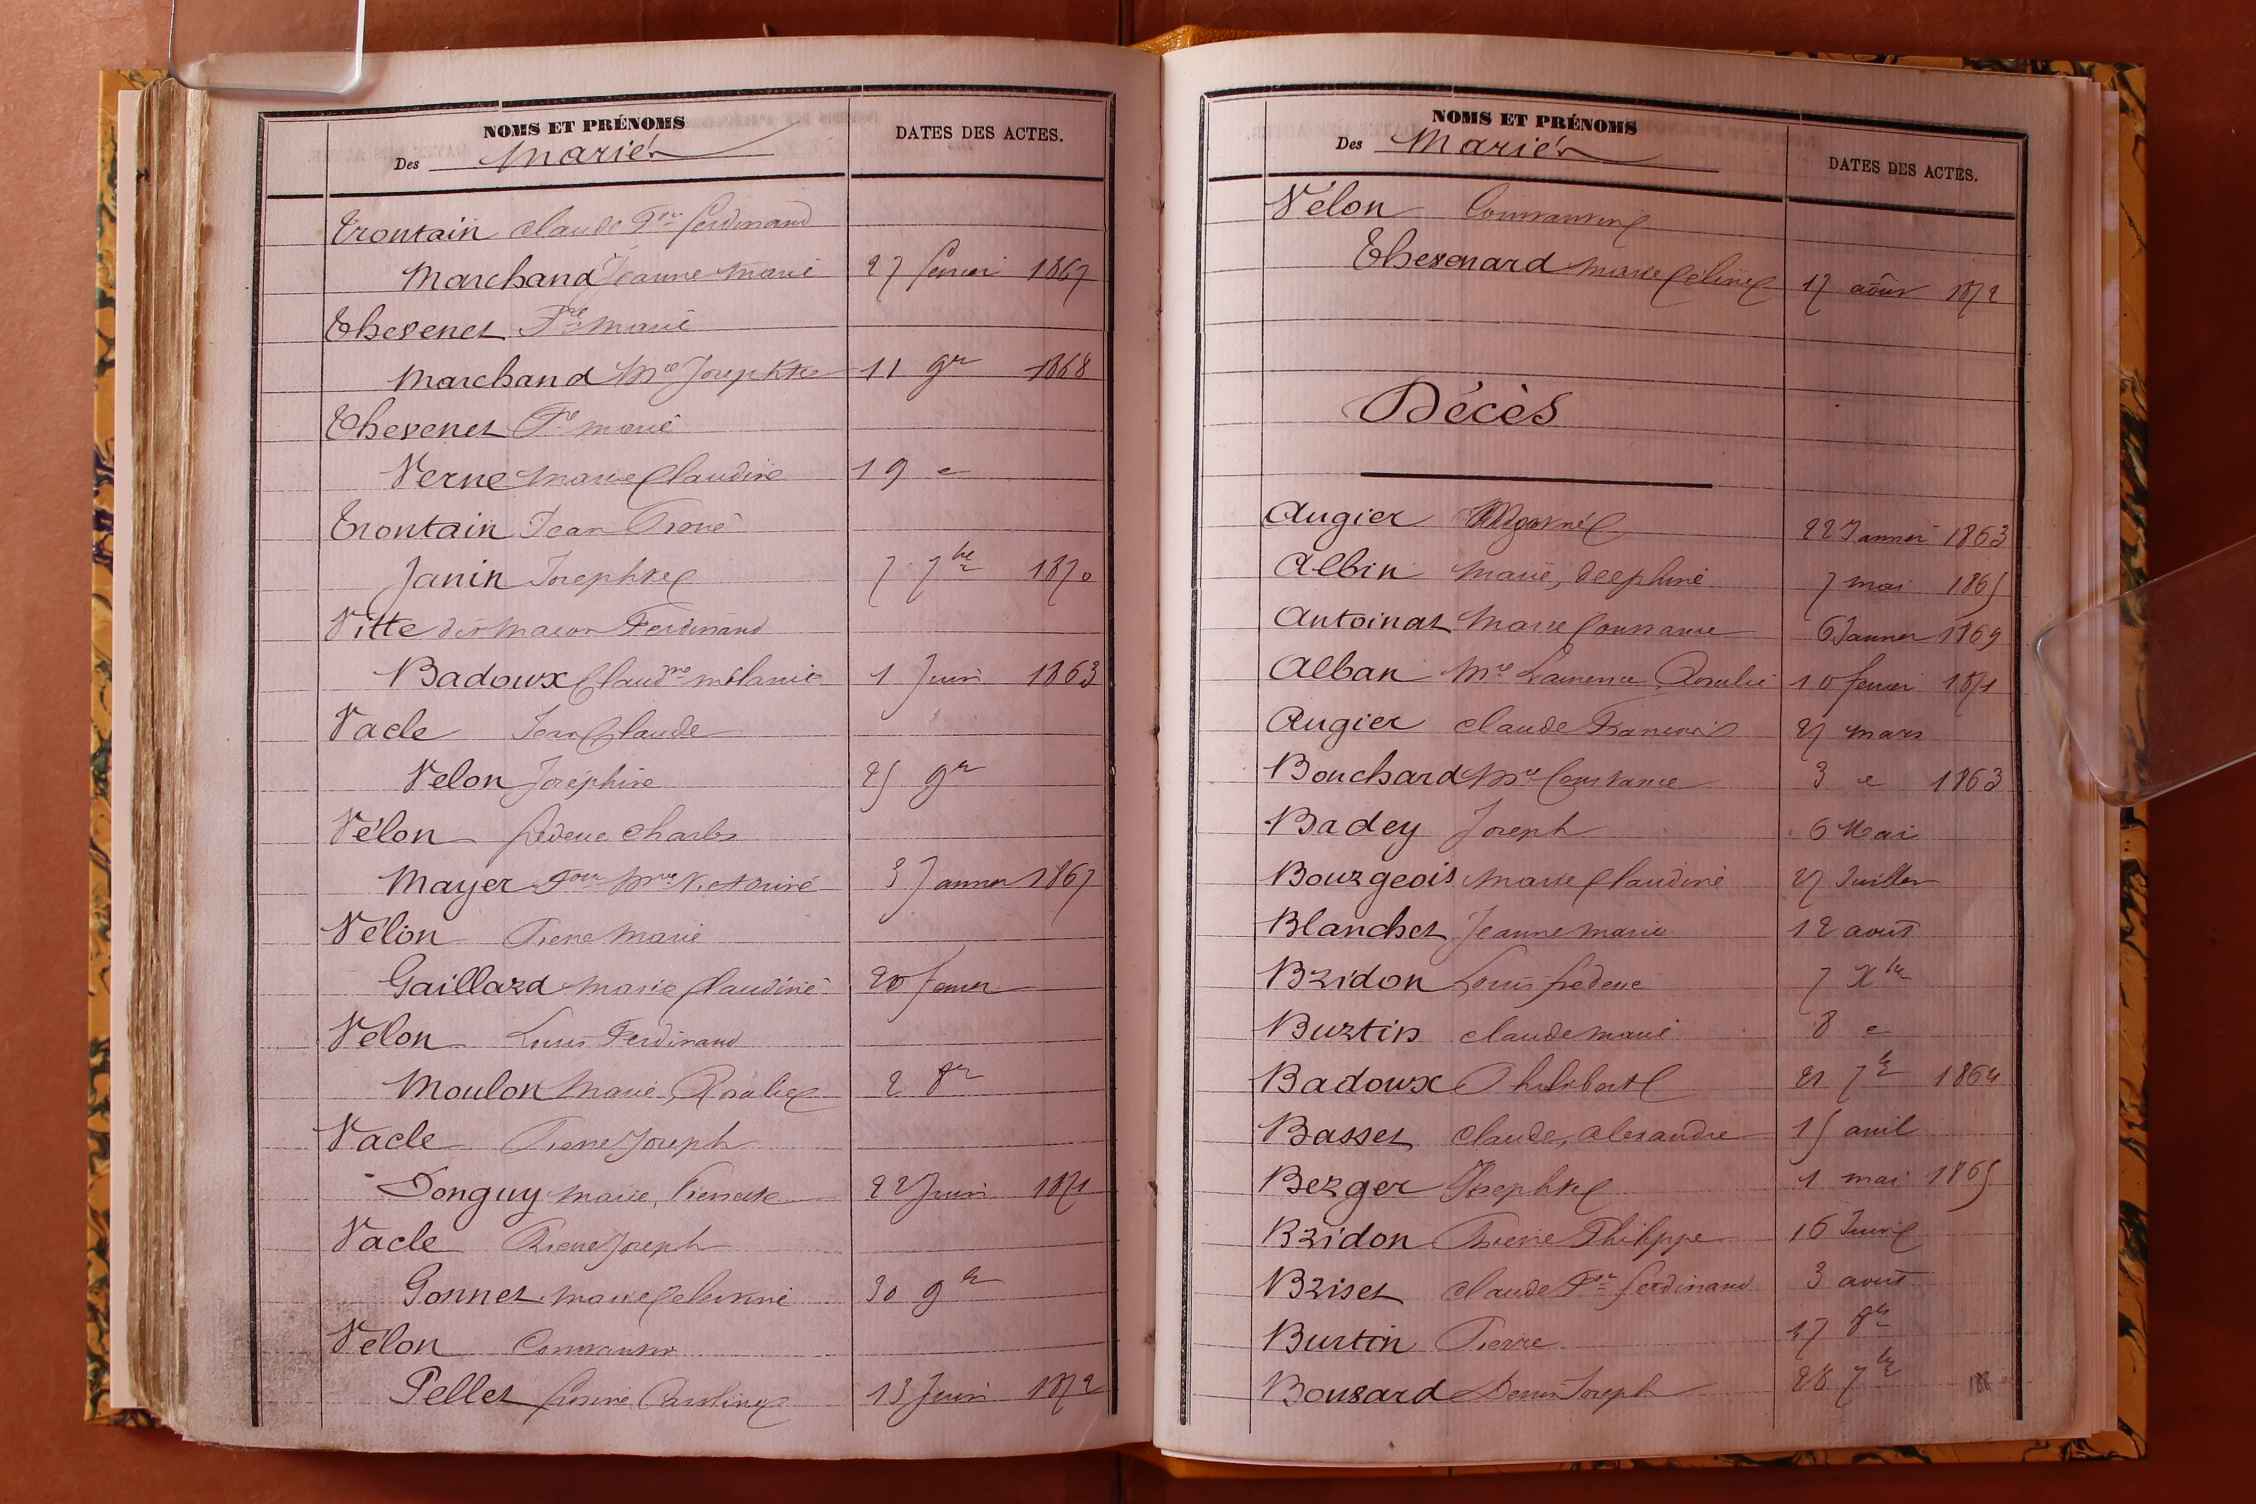 NOMS ET PRÉNOMS
Des Mariés
DATES DES ACTES.
Trontain Claude Fois Ferdinand
Marchand Jeanne Marie 27 fevrier 1867
Thevenet Fre Marie
Marchand Mie Josephte 11 9re 1868
Thevenet Fre Marie
Verne Marie Claudine 19 e
Trontain Jean
Janin Josephte 7 7bre 1870
Vitte dit Macon Ferdinand
Badoux Claudne Mélanie 1 Juin 1863
Vacle Jean Claude
Velon Joséphine 25 9re
Vélon fréderic Charles
Mayer Foise Mie Victorine 3 Janvier 1867
Vélon Pierre Marie
Gaillard Marie Claudine 20 fevrier
Vélon Louis Ferdinand
Moulon Marie, Rosalie 2 8re
Vacle Pierre Joseph
Donguy Marie, Pierrette 22 Juin 1871
Vacle Pierre Joseph
Gonnet Marie 30 9bre
Vélon Constantin
Pellet Caroline 13 Juin 1872
NOMS ET PRÉNOMS
Des Mariés
DATES DES ACTES.
Vélon Constantin
Thevenard Marie Celine 17 août 1872
Décès
Augier 22 Janvier 1863
Albin Marie, Delphine 7 mai 1865
Antoinat Marie Constance 6 Janvier 1869
Alban Mie Laurence Rosalie 10 fevrier 1871
Augier Claude Francois 27 mars
Bouchard Mie Constance 3 e 1863
Badey Joseph 6 Mai
Bourgeois Marie Claudine 27 Juillet
Blanchet Jeanne Marie 12 août
Bridon Louis fréderic 7 Xbre
Burtin Claude Marie 8 e
Badoux Philiberte 21 7bre 1864
Basset Claude, Alexandre 15 avril
Berger Josephte 1 mai 1865
Bridon Pierre Philippe 16 Juin
Briset Claude Fois ferdinand 3 août
Burtin Pierre 17 8bre
Bonsard Denis Joseph 28 7bre